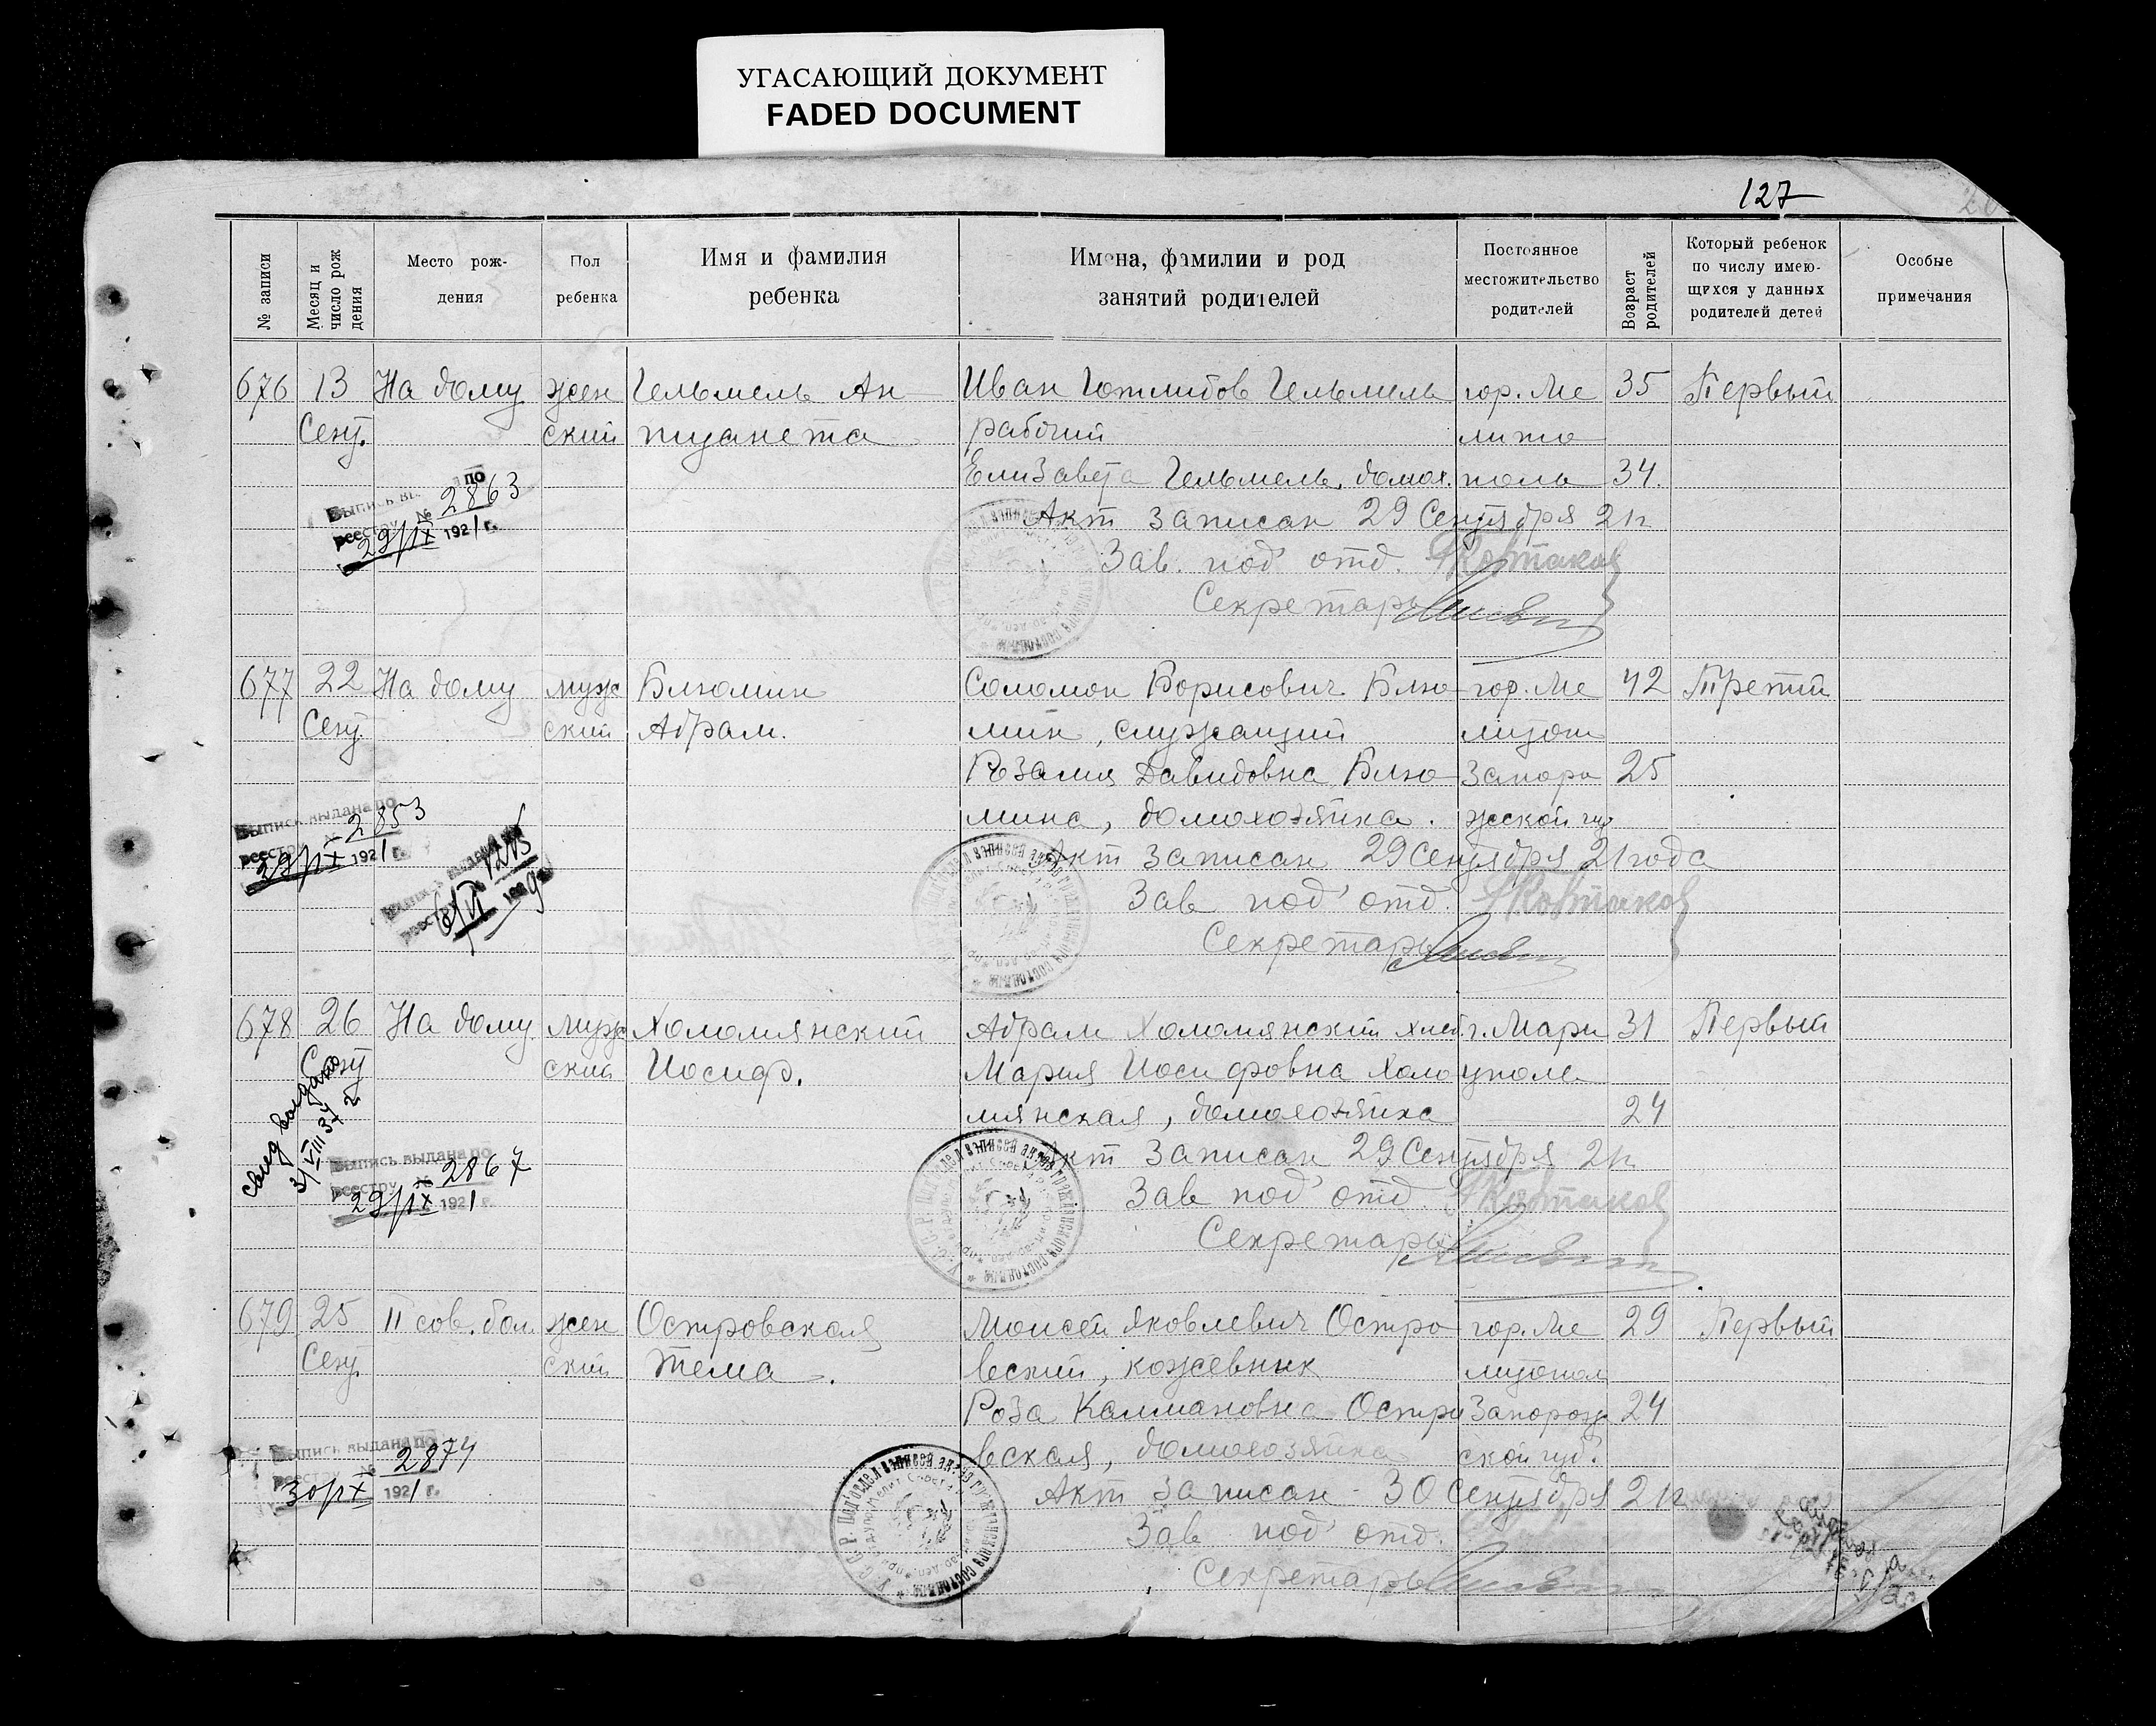 УГАСАЮЩИЙ ДОКУМЕНТ
FADED DOCUMENT
127
№ записи
Месяц и число рождения
Место рож-
дения
Пол
ребенка
Имя и фамилия
ребенка
Имена, фамилии и род
занятий родителей
Постоянное
местожительство
родителей
Возраст
родителей
Который ребенок
по числу имею-
щихся у данных
родителей детей
Особые
примечания
676 13 На дому жен Гельмель Ан Иван Готлибов Гельмель гор. Ме 35 Первый
Сент. ский туанета рабочий лито
Елизавета Гельмель, домох. поль 34.
Выпись вы по
реестру № 2863
29/IX 1921 г.
Акт записан 29 Сентября 21 г.
Зав. под'отд.
Секретарь
677 22 На дому муж Блюмин Соломон Борисович Блю гор. Ме 42 Третий
Сент. ский Абрам. мин, служащий литоп
Розалия Давидовна Блю Запоро 25
мина, домохозяйка. жской губ
Выпись выдана по
реестру № 2853
29/IX 1921 г.
Акт записан 29 Сентября 21 года
Зав под'отд.
Секретарь
678 26 На дому муж Холомянский Абрам Холомянский г. Мари 31 Первый
Сент ский Иосиф. Мария Иосифовна Холо уполь
мянская, домохозяйка 24
свид выдано
3/VIII 37 г.
Выпись выдана по
реестру № 2867
29/IX 1921 г.
Акт записан 29 Сентября 21 г.
Зав под'отд.
Секретарь
679 25 II сов. бол. жен Островская Моисей Яковлевич Остро гор. Ме 29 Первый
Сент. ский Тема. вский, кожевник литопол
Роза Калмановна Остро Запорож 24
вская, домохозяйка ской губ.
Выпись выдана по
реестру № 2874
30/IX 1921 г.
Акт записан 30 Сентября 21 г.
Зав под'отд.
Секретарь